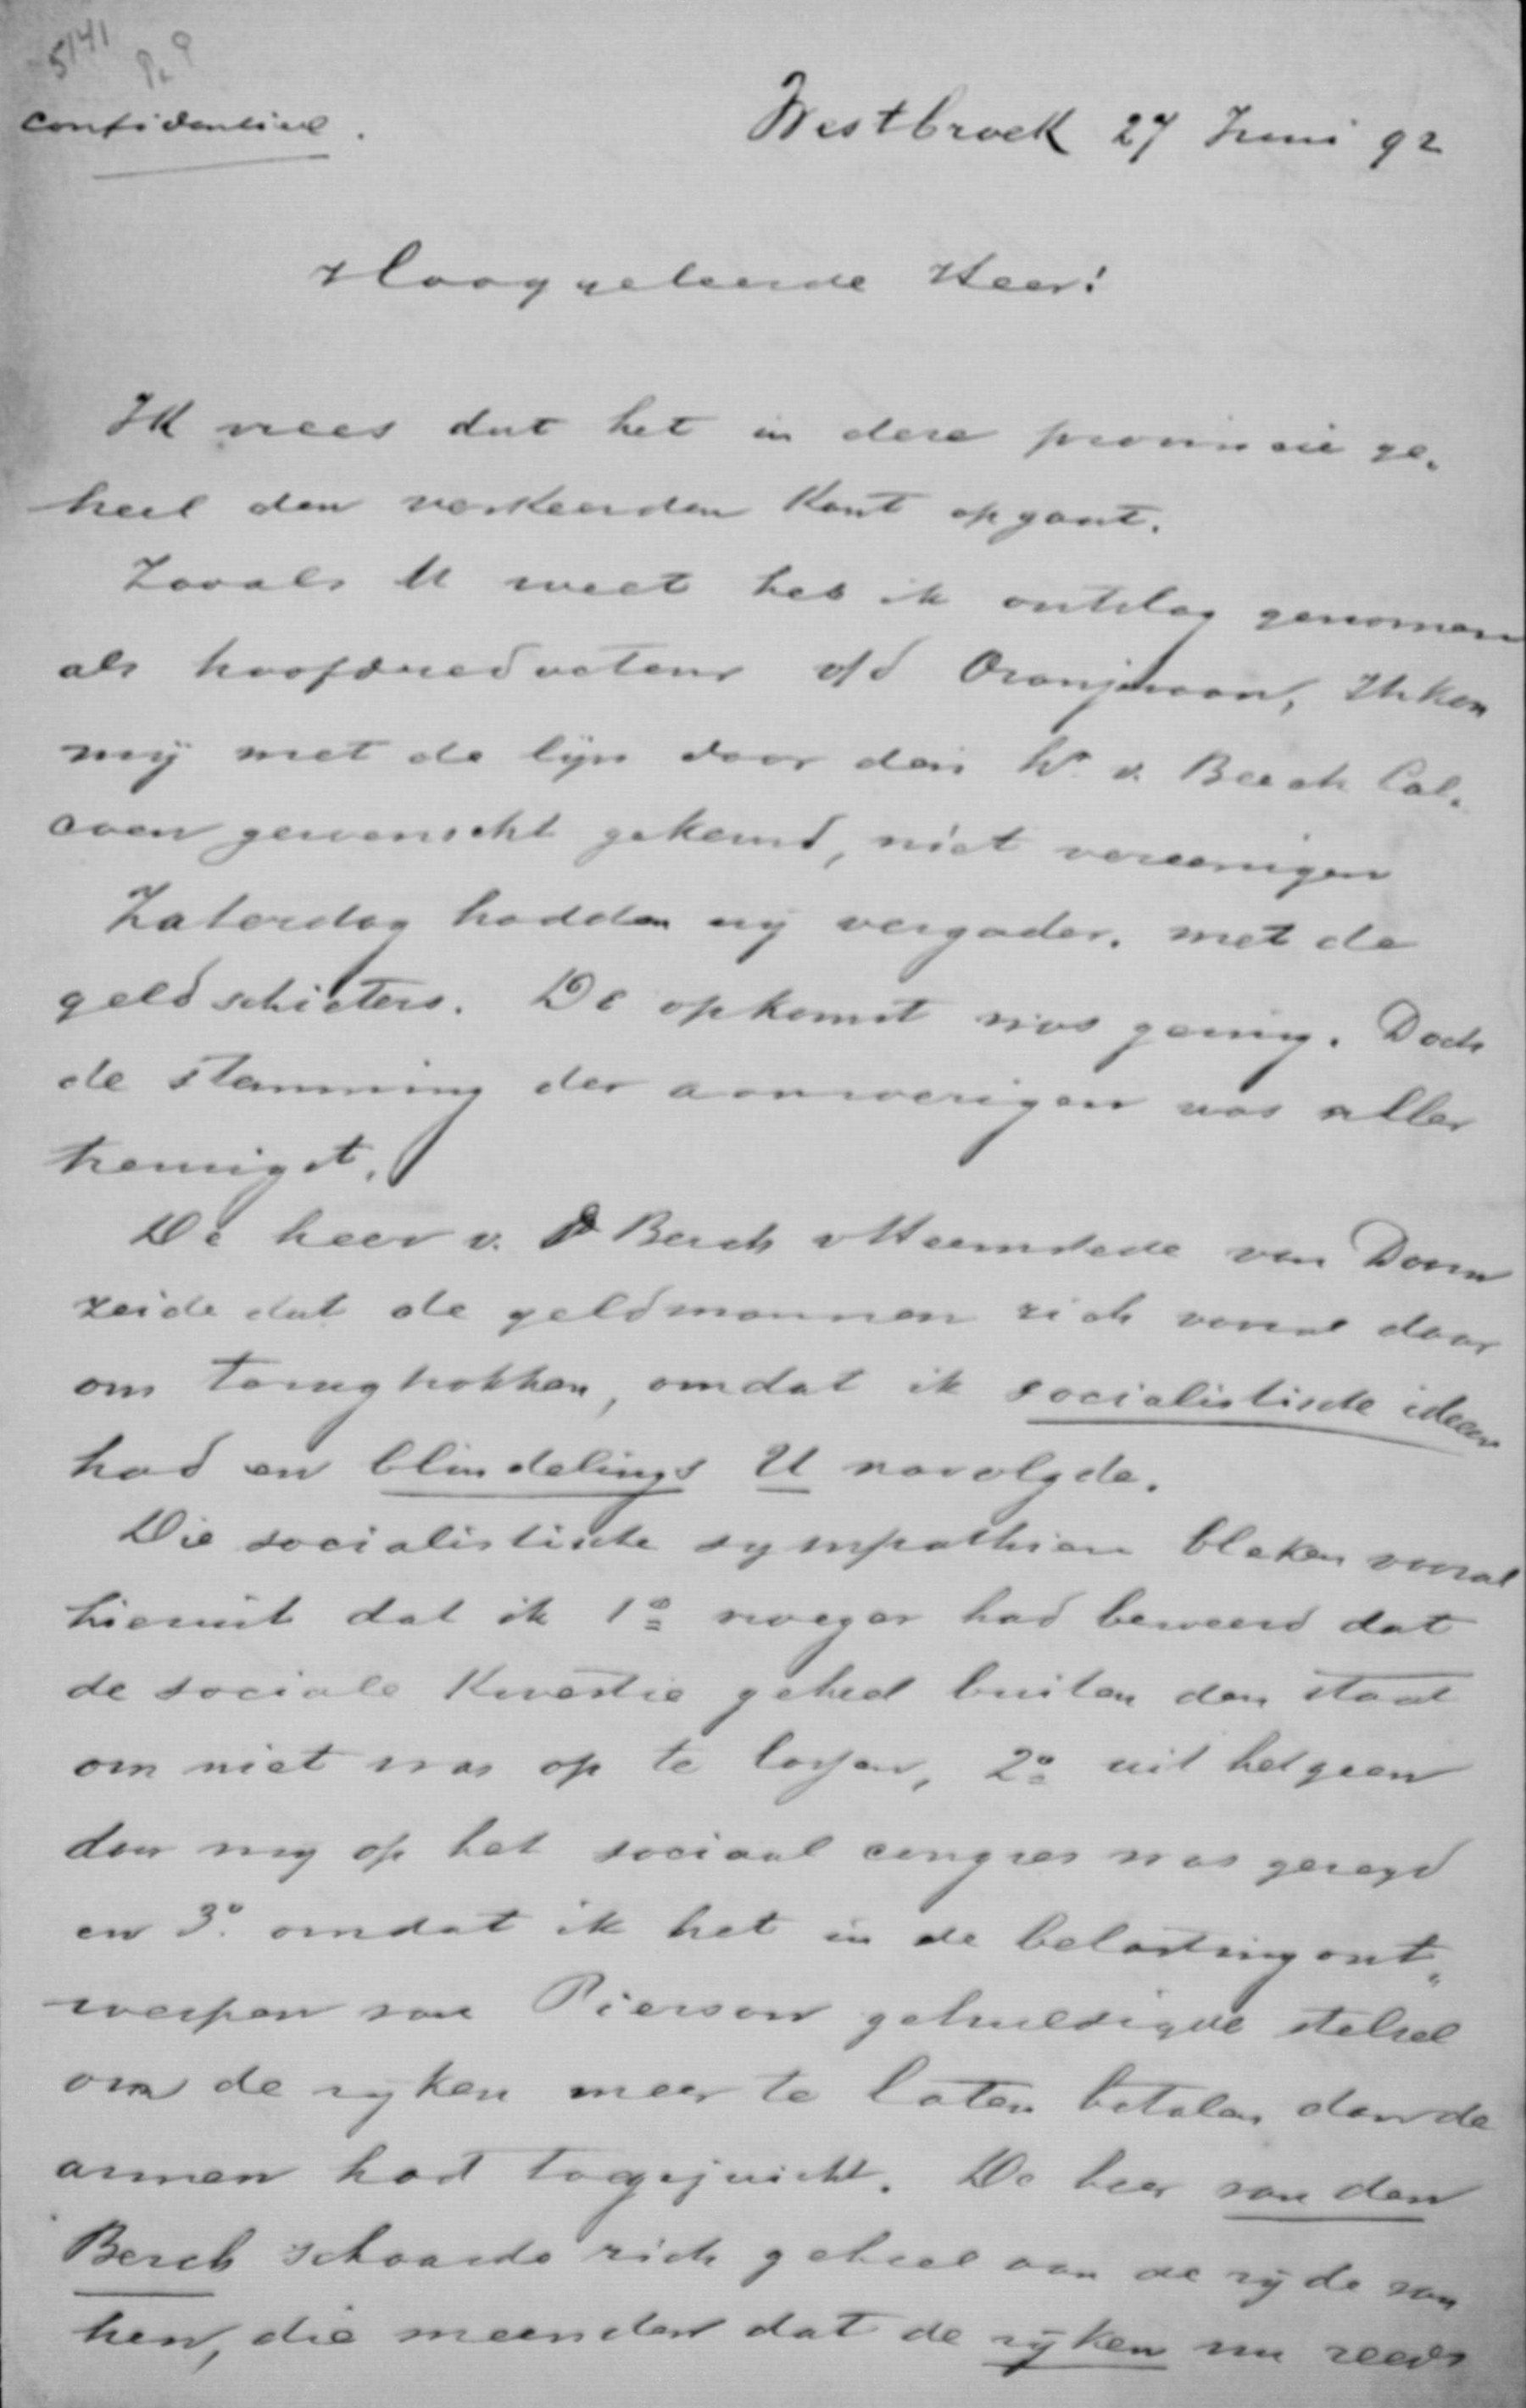 5141
confidentieel.
Westbroek 27 Juni 92
Hooggeleerde Heer!
Ik vrees dat het in deze provincie ge„
heel den verkeerden kant opgaat.
Zooals U weet heb ik ontslag genomen
als hoofdredacteur v/d Oranjevaan, Ik kon
mij met de lijn door den Hr v. Beeck Cal„
coen gewenscht gekeurd, niet vereenigen
Zaterdag hadden wij vergader. met de
geldschieters. De opkomst was gering. Doch
de stemming der aanwezigen was aller
treurigst.
De heer v. d Berch v Heemstede van Doorn
zeide dat de geldmannen zich vooral daar
om terugtrokken, omdat ik socialistische ideen
had en blindelings U navolgde.
Die socialistische sympathien bleken vooral
hieruit dat ik 1o vroeger had beweerd dat
de sociale kwestie geheel buiten den staat
om niet was op te lossen, 2o uit hetgeen
door mij op het sociaal congres was gezegd
en 3o omdat ik het in de belastingont„
werpen van Pierson gehuldigde stelsel
om de rijken meer te laten betalen dan de
armen had toegejuicht. De heer van den
Berch schaarde zich geheel aan de zijde van
hen, die meenden dat de rijken nu reeds